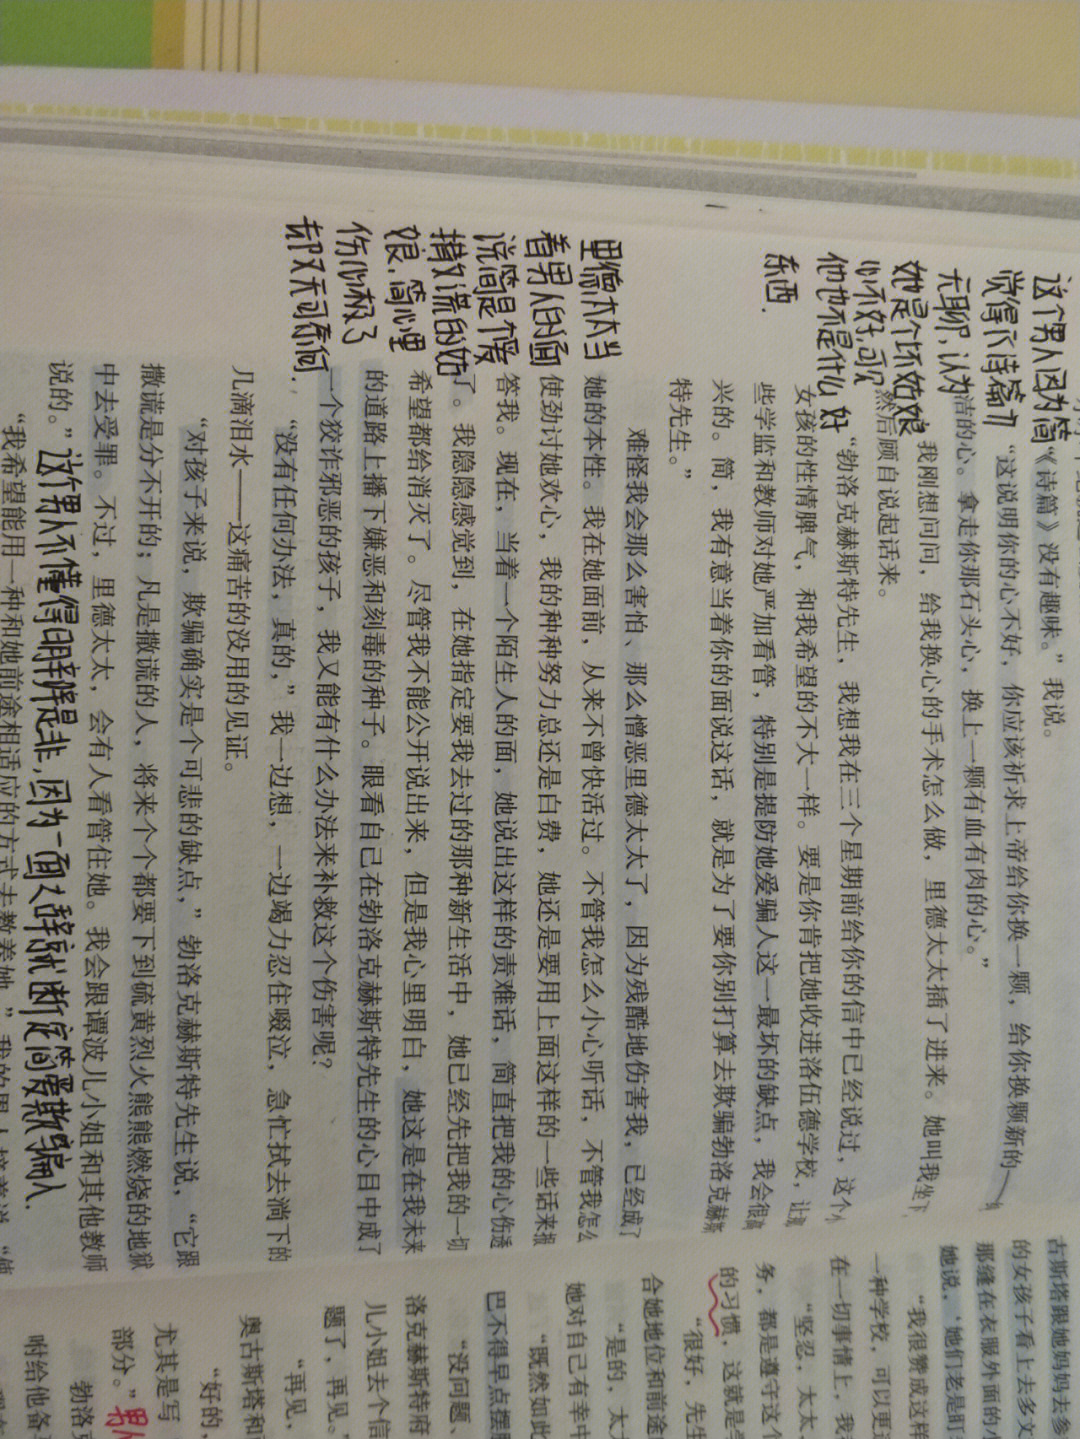 这个男人因为简
觉得示诗篇力
无聊，认为
她是个坏姑娘
心不好，可见
他也不是什么好
东西．
里德太太当
着男人的面
说简是个爱
撒谎的姑
娘，简心里
伤心极了
却又无可奈何
《诗篇》没有趣味。”我说。
“这说明你的心不好，你应该祈求上帝给你换一颗，给你换颗新的——
洁的心。拿走你那石头心，换上一颗有血有肉的心。”
我刚想问问，给我换心的手术怎么做，里德太太插了进来。她叫我坐下，
然后顾自说起话来。
“勃洛克赫斯特先生，我想我在三个星期前给你的信中已经说过，这个小
女孩的性情脾气，和我希望的不大一样。要是你肯把她收进洛伍德学校，让
些学监和教师对她严加看管，特别是提防她爱骗人这一最坏的缺点，我会很高
兴的。简，我有意当着你的面说这话，就是为了要你别打算去欺骗勃洛克赫斯
特先生。”
难怪我会那么害怕、那么憎恶里德太太了，因为残酷地伤害我，已经成了
她的本性。我在她面前，从来不曾快活过。不管我怎么小心听话，不管我怎么
使劲讨她欢心，我的种种努力总还是白费，她还是要用上面这样的一些话来报
答我。现在，当着一个陌生人的面，她说出这样的责难话，简直把我的心伤透
了。我隐隐感觉到，在她指定要我去过的那种新生活中，她已经先把我的一切
希望都给消灭了。尽管我不能公开说出来，但是我心里明白，她这是在我未来
的道路上播下嫌恶和刻毒的种子。眼看自己在勃洛克赫斯特先生的心目中成了
一个狡诈邪恶的孩子，我又能有什么办法来补救这个伤害呢？
“没有任何办法，真的，”我一边想，一边竭力忍住啜泣，急忙拭去淌下的
几滴泪水——这痛苦的没用的见证。
“对孩子来说，欺骗确实是个可悲的缺点，”勃洛克赫斯特先生说，“它跟
撒谎是分不开的；凡是撒谎的人，将来个个都要下到硫黄烈火熊熊燃烧的地狱
中去受罪。不过，里德太太，会有人看管住她。我会跟谭波儿小姐和其他教师
说的。”
这个男人不懂得明辨是非，因为一面之辞就断定简爱欺骗人．
“我希望能用一种和她前途相适应的方式去教养她，”我的恩人接着说，“使
古斯塔跟她妈妈去参
的女孩子看上去多文
那缝在衣服外面的小
她说，‘她们老是盯
“我很赞成这样
一种学校，可以更适
在一切事情上，我
“坚忍，太太，
务，都是遵守这个
的习惯，这就是学
“很好，先生
合她地位和前途
“是的，太太
她对自己有幸中
“既然如此
巴不得早点摆脱
“没问题、
洛克赫斯特府
儿小姐去个信
题了，再见。
“再见，
奥古斯塔和
“好的，
尤其是写
部分。”
男人
勃洛克
咐给他备